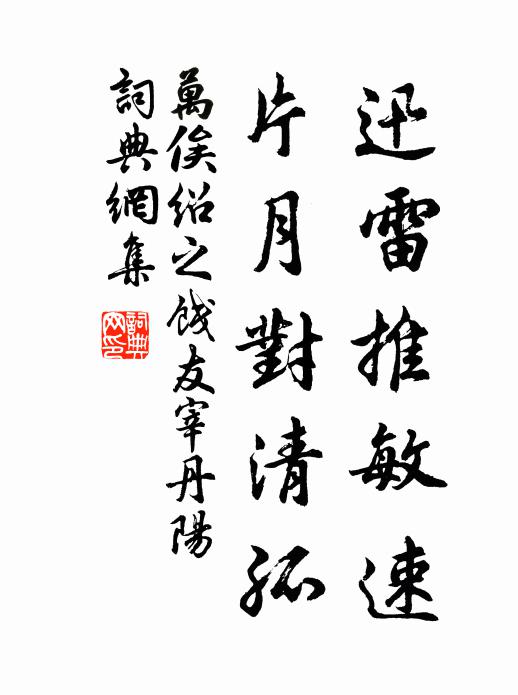 迅雷推敏速
片月對清孤
萬俟紹之餞友宰丹陽
詞典網集
詞典
网印